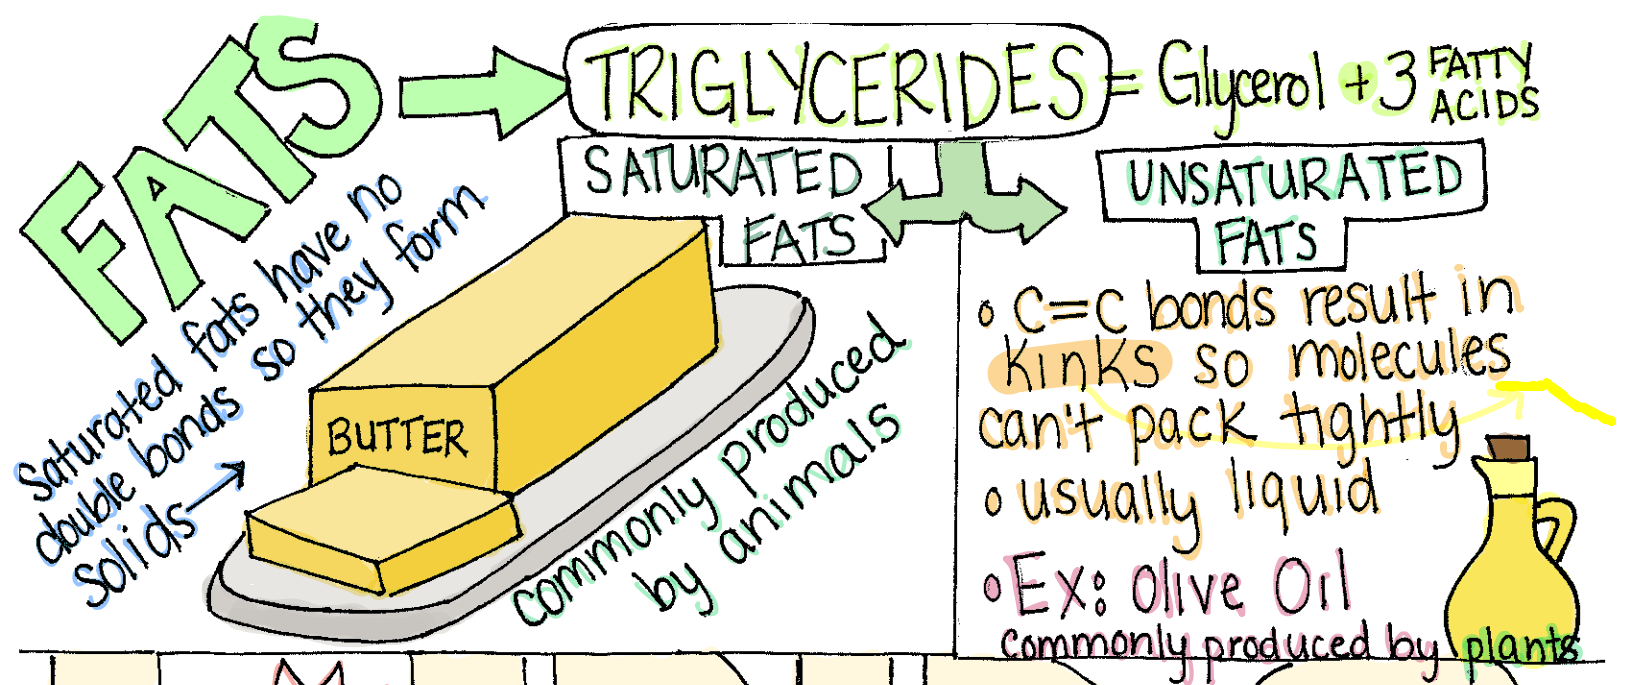 FATS
TRIGLYCERIDES = Glycerol + 3 FATTY ACIDS
SATURATED
FATS
Saturated fats have no
double bonds so they form
solids
BUTTER
commonly produced
by animals
UNSATURATED
FATS
• C=C bonds result in
kinks so molecules
can't pack tightly
• usually liquid
• Ex: Olive Oil
commonly produced by plants